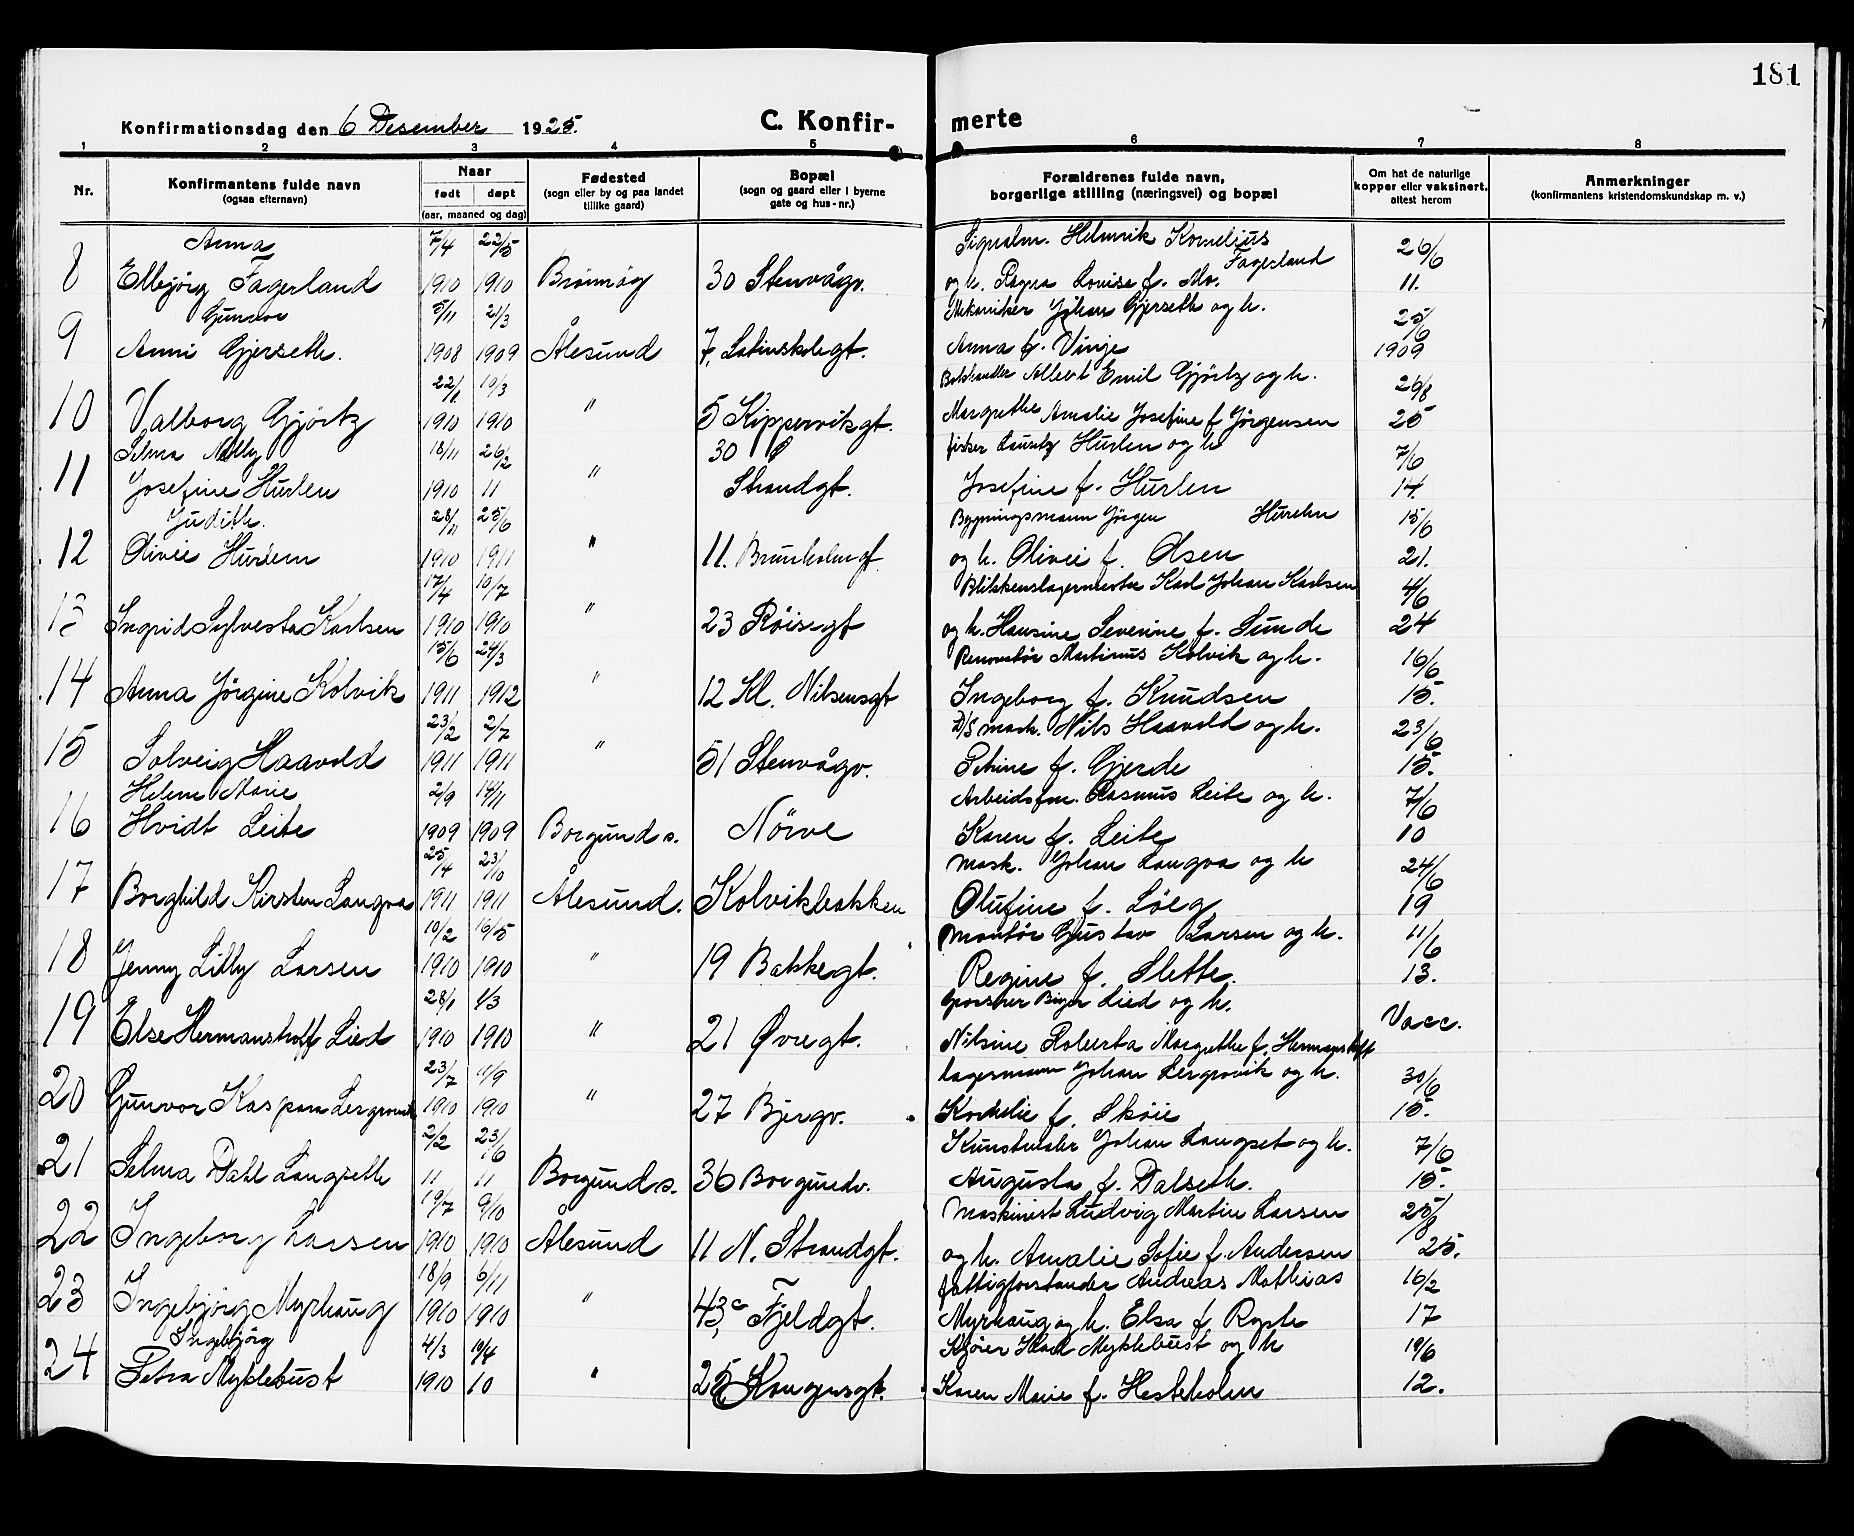 181
Konfirmationsdag den 6 Desember 1925.
C. Konfir- merte
1 2 3 4 5 6 7 8
Nr.
Konfirmantens fulde navn
(ogsaa efternavn)
Naar
født døpt
(aar, maaned og dag)
Fødested
(sogn eller by og paa landet
tillike gaard)
Bopæl
(sogn og gaard eller i byerne
gate og hus-nr.)
Forældrenes fulde navn,
borgerlige stilling (næringsvei) og bopæl
Om hat de naturlige
kopper eller vaksinert,
attest herom
Anmerkninger
(konfirmantens kristendomskundskap m. v.)
Anna 7/4 22/5 Helmrik Kornelius Fagerland 26/6
8 Fagerland 1910 1910 30 Stenvågv. og h. Ragna Lovise f. Mo. 11.
5/11 21/3 Mekaniker Johan Gjerseth og h. 25/6
9 Anni Gjerseth. 1908 1909 Ålesund 7, Latinskolegt. Anna f. Vinje 1909
22/1 10/3 Albert Emil Gjörtz og h. 26/8
10 Valborg Gjörtz 1910 1910 " 5 Kippervikgt. Margrethe Amalie Josefine f Jörgensen 25
Selma Nelly 18/11 26/2 30 Ø fisker Lauritz Hurlen og h 7/6
11 Josefine Hurlen 1910 11 " Strandgt. Josefine f. Hurlen 14.
Judith. 28/11 25/6 Bygningsmann Jörgen Hurlen 15/6
12 Olivie Hurlen 1910 1911 " 11. Brunholmgt og h. Olivie f. Olsen 21.
17/4 10/7 Blikkenslagermester Karl Johan Karlsen 4/6
13 Ingrid Sylvesta Karlsen 1910 1910 " 23 Röisegt og h. Hansine Severine f. Sunde 24
15/6 24/3 Renovatör Martinus Kolvik og h. 16/6
14 Anna Jörgine Kolvik 1911 1912 " 12 Kl. Nilsensgt Ingeborg f. Knudsen 15.
23/2 2/7 D/S mask. Nils Haavold og h. 23/6
15 Solveig Haavold 1911 1911 " 51 Stenvågv. Petrine f. Gjerde 15.
Helene Marie 2/9 14/11 Arbeidsfm. Rasmus Leite og h. 7/6
16 Hvidt Leite 1909 1909 Borgund s. Nörve Karen f. Leite 10
25/4 23/10 Mask. Johan Langva og h 24/6
17 Borghild Kirsten Langva 1911 1911 Ålesund. Kolvikbakken Olufine f. Löeg 19
10/2 16/5 Montör Gustav Larsen og h. 11/6
18 Jenny Lilly Larsen 1910 1910 " 19 Bakkegt. Regine f. Slette. 13.
28/1 4/3 Lied og h.
19 Else Hermanshoff Lied 1910 1910 " 21 Øvregt. Nilsine Roberta Margrethe f. Hermanshoff Vacc.
23/7 11/9 Lagermann Johan Lergrovik og h. 30/6
20 Gunvor Kaspara Lergrovik 1910 1910 " 27 Bjergv. Kornelie f. Sköie 15.
2/2 23/6 Kunstmaler Johan Langset og h. 7/6
21 Selma Dahl Langseth 11 11 Borgund s. 36 Borgundv. Augusta f. Dalseth. 15.
19/7 9/10 Maskinist Ludvig Martin Larsen 25/8
22 Ingeborg Larsen 1910 1910 Ålesund 11 N. Strandgt. og h. Amalie Sofie f. Andersen 25.
18/9 6/11 fattigforstander Andreas Mathias 16/2
23 Ingebjörg Myrhaug 1910 1910 " 43, c Fjeldgt. Myrhaug og h. Elsa f Rypte 17
Ingebjörg 4/3 Kjörer Karl Myklebust og h 19/6
24 Petra Myklebust 1910 10 " Kongensgt. Karen Marie f. Hesteholm 12.